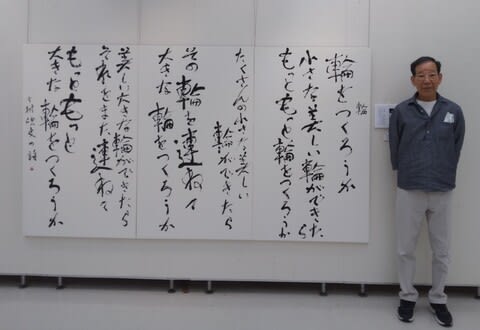 輪
輪をつくろうか
小さな美しい輪ができたら
もっともっと輪をつくろうか
たくさんの小さな美しい
輪ができたら
その輪を連ねて
大きな輪をつくろうか
美しい大きな輪ができたら
それをまた連ねて
もっともっと
大きな輪をつくろうか
の詩